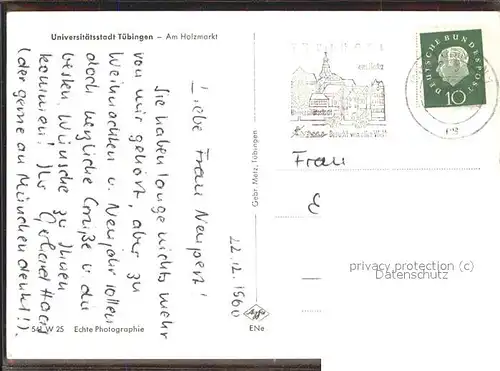 Universitätsstadt Tübingen – Am Holzmarkt
22.12.1960
Liebe Frau Neupert!
Sie haben lange nichts mehr
von mir gehört, aber zu
Weihnachten u. Neujahr sollen
doch herzliche Grüße u. die
besten Wünsche zu Ihnen
kommen! Ihr Gerhard
(der gerne an München denkt!).
W 25 Echte Photographie
Gebr. Metz, Tübingen
Agfa
ENe
TÜBINGEN
DEUTSCHE BUNDESPOST
10
Frau
E
privacy protection (c)
Datenschutz